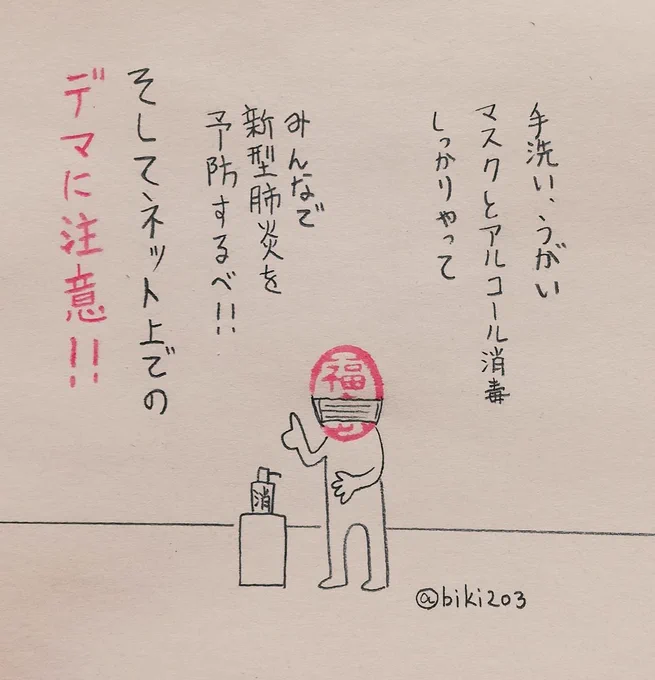 手洗い、うがい
マスクとアルコール消毒
しっかりやって
みんなで
新型肺炎を
予防するべ!!
そしてネット上での
デマに注意!!
福
消
@biki203